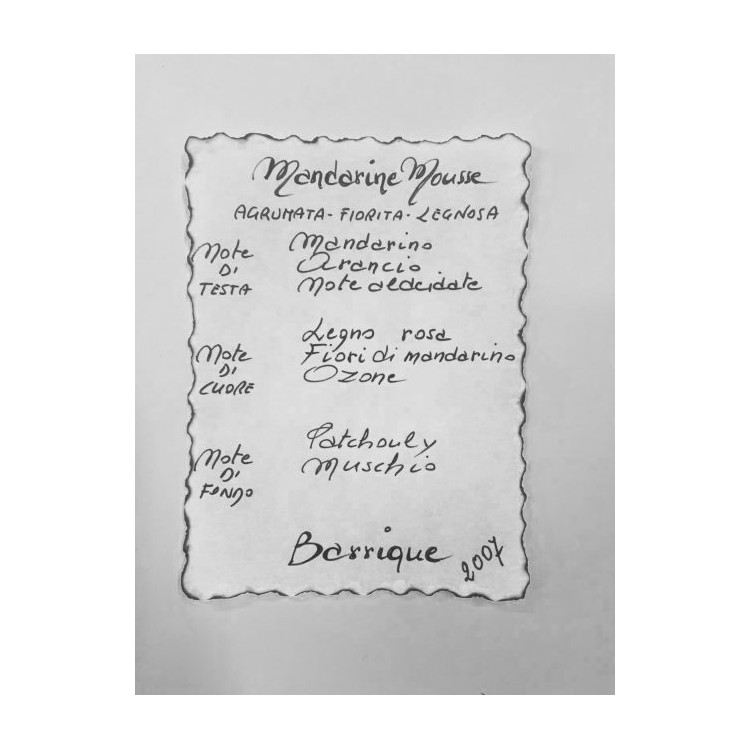 Mandarine Mousse
AGRUMATA - FIORITA - LEGNOSA
Note
DI
TESTA
Mandarino
Arancio
Note aldeidate
Note
DI
CUORE
Legno rosa
Fiori di mandarino
Ozone
Note
DI
FONDO
Patchouly
Muschio
Barrique
2007